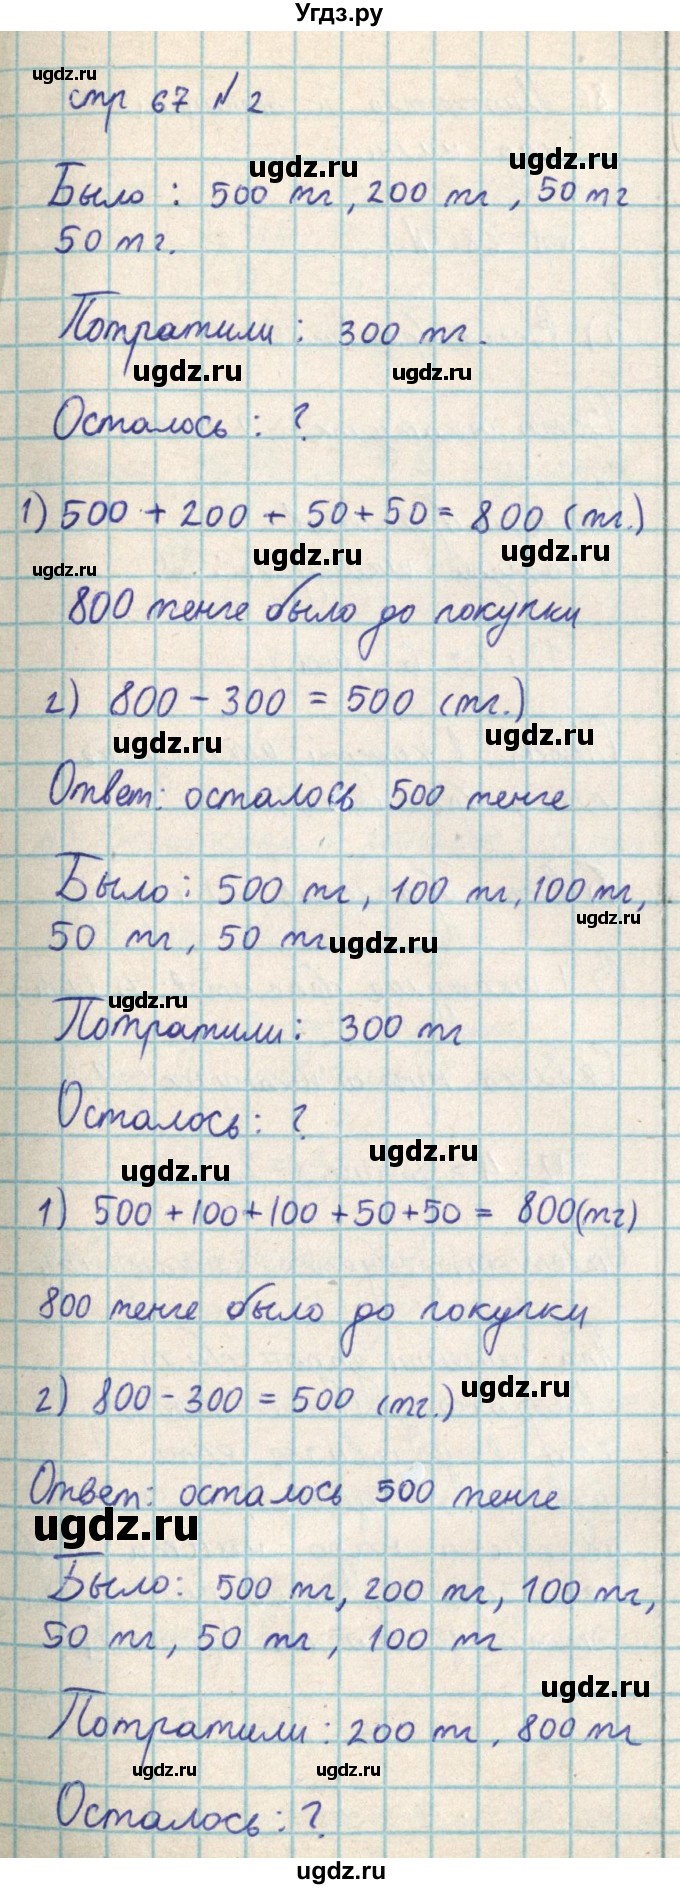 Угдз.ру
ugdz.ru
стр 67 № 2
ugdz.ru ugdz.ru
Было: 500 тг, 200 тг, 50 тг
50 тг.
Потратили: 300 тг.
ugdz.ru ugdz.ru
Осталось: ?
1) 500 + 200 + 50 + 50 = 800 (тг.)
ugdz.ru ugdz.ru ugdz.ru
800 тенге было до покупки
2) 800 - 300 = 500 (тг.)
ugdz.ru ugdz.ru
Ответ: осталось 500 тенге
Было: 500 тг, 100 тг, 100 тг,
ugdz.ru
50 тг, 50 тг
ugdz.ru
ugdz.ru
Потратили: 300 тг
Осталось: ?
ugdz.ru ugdz.ru
1) 500 + 100 + 100 + 50 + 50 = 800 (тг)
800 тенге было до покупки
2) 800 - 300 = 500 (тг.)
ugdz.ru
Ответ: осталось 500 тенге
ugdz.ru
Было: 500 тг, 200 тг, 100 тг,
50 тг, 50 тг, 100 тг
ugdz.ru
Потратили: 200 тг, 800 тг
ugdz.ru ugdz.ru
Осталось: ?
ugdz.ru